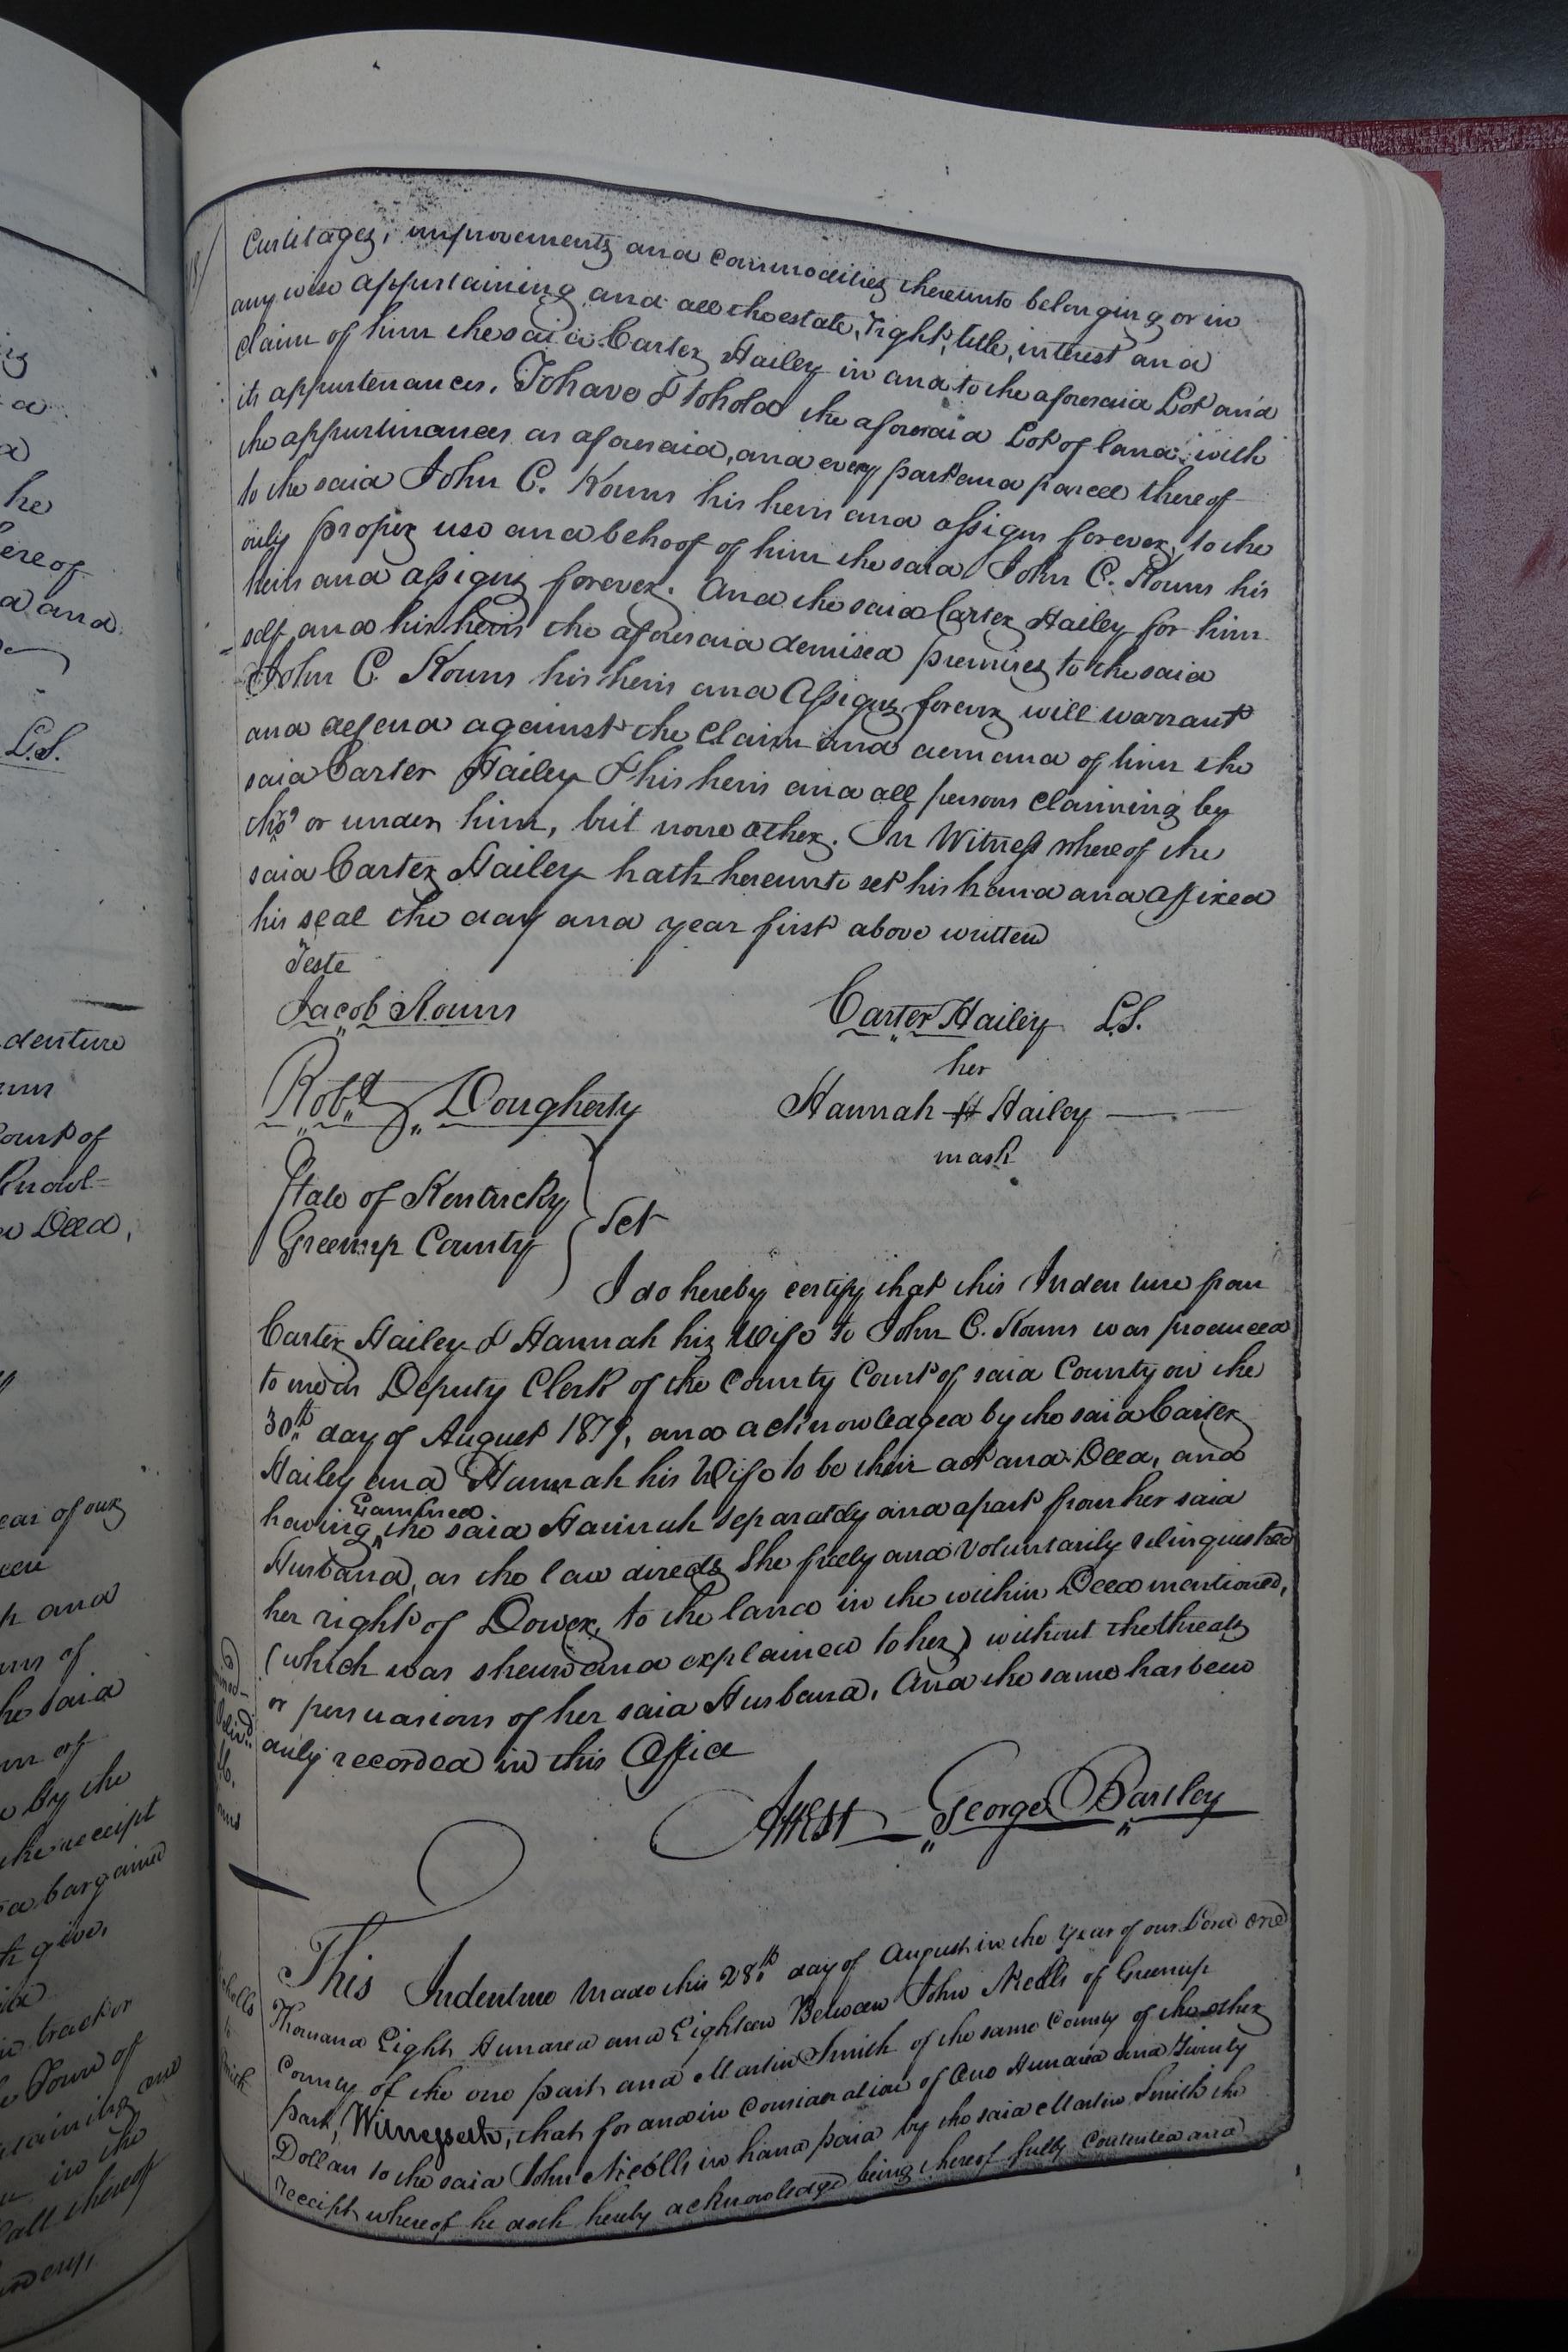 Curtilages, improvements and commodities thereunto belonging or in
any wise appurtaining and all the estate, right, title, interest and
claim of him the said Carter Hailey in and to the aforesaid Lot and
its appurtenances. To have & to hold the aforesaid Lot of land with
the appurtinances as aforesaid, and every part and parcel thereof
to the said John C. Kouns his heirs and assigns forever, to the
only proper use and behoof of him the said John C. Kouns his
heirs and assigns forever. And the said Carter Hailey for him
self and his heirs the aforesaid demised premises to the said
John C. Kouns his heirs and Assigns forever will warrant
and defend against the claim and demand of him the
said Carter Hailey & his heirs and all persons claiming by
thro' or under him, but none other. In Witness whereof the
said Carter Hailey hath hereunto set his hand and affixed
his seal the day and year first above written
Teste
Jacob Kouns
Carter Hailey L.S.
her
Robt. Dougherty
Hannah H Hailey
mark
State of Kentucky
Greenup County
Sct
I do hereby certify that this Indenture from
Carter Hailey & Hannah his Wife to John C. Kouns was produced
to me as Deputy Clerk of the County Court of said County on the
30th day of August 1819, and acknowledged by the said Carter
Hailey and Hannah his Wife to be their act and Deed, and
Examined
having the said Hannah separately and apart from her said
Husband, as the law directs She freely and voluntarily relinquished
her right of Dower, to the land in the within Deed mentioned,
(which was shewn and explained to her) without the threats
or persuasions of her said Husband. And the same has been
duly recorded in this Office
Attest George Bartley
This Indenture made this 28th day of August in the year of our Lord one
Thousand Eight Hundred and Eighteen Between John Nicolls of Greenup
County of the one part and Martin Smith of the same County of the other
part, Witnesseth, that for and in consideration of One Hundred and Twenty
Dollars to the said John Nicolls in hand paid by the said Martin Smith the
receipt whereof he doth hereby acknowledge being thereof fully contented and